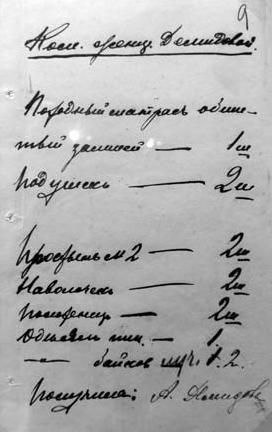 9
Косм. женщ. Демидовой.
Походный матрасъ обши-
тый замшей — 1 ш
Подушекъ — 2 ш
Простынь № 2 — 2 ш
Наволочекъ — 2 ш
Полотенцъ — 2 ш
Одѣялъ — 1.
— " — байков 1.2.
Получила: А. Демидова